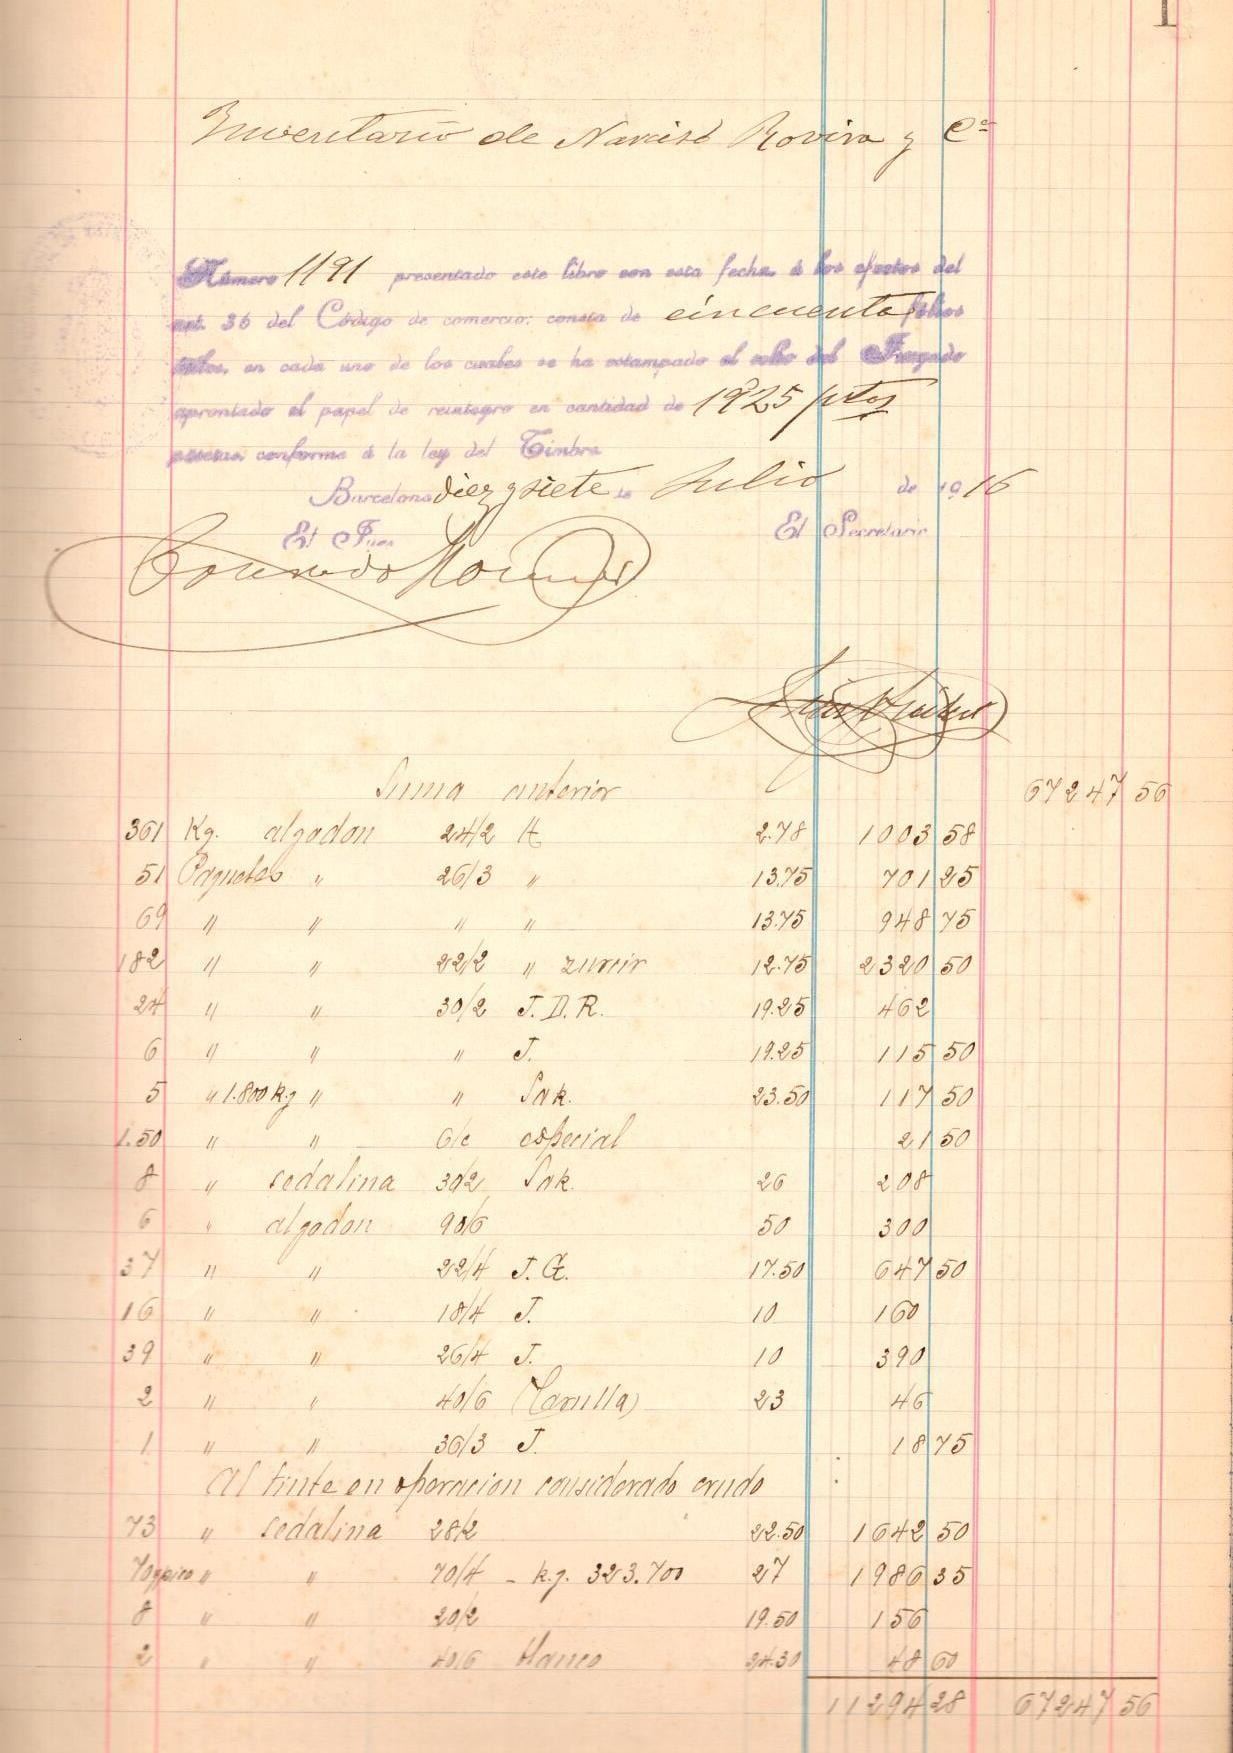 Inventario de Narciso Rovira y Cª
Número 1191 presentado este libro con esta fecha á los efectos del
art. 36 del Código de comercio: consta de cincuenta folios
útiles, en cada uno de los cuales se ha estampado el sello del Juzgado
aprontado el papel de reintegro en cantidad de 1925 ptas
pesetas conforme á la ley del Timbre
Barcelona diez y siete de Julio de 1916
El Juez El Secretario
Suma anterior 67247 56
361 Kg. algodon 24/2 H 2.78 1003 58
51 Paquetes " 26/3 " 13.75 701 25
69 " " " " 13.75 948 75
182 " " 22/2 " zurcir 12.75 2320 50
24 " " 30/2 J.D.R. 19.25 462
6 " " " J. 19.25 115 50
5 " 1.800 kg " " Sak. 23.50 117 50
1.50 " " 6/c especial 21 50
8 " sedalina 30/2 Sak. 26 208
6 " algodon 90/6 50 300
37 " " 22/4 J.G. 17.50 647 50
16 " " 18/4 J. 10 160
39 " " 26/4 J. 10 390
2 " " 40/6 23 46
1 " " 36/3 J. 18 75
Al tinte en operacion considerado crudo
73 " sedalina 28/2 22.50 1642 50
70 y pico " " 70/4 - kg. 323.700 27 1986 35
8 " " 20/2 19.50 156
2 " " 40/6 blanco 24.30 48 60
11294 28 67247 56